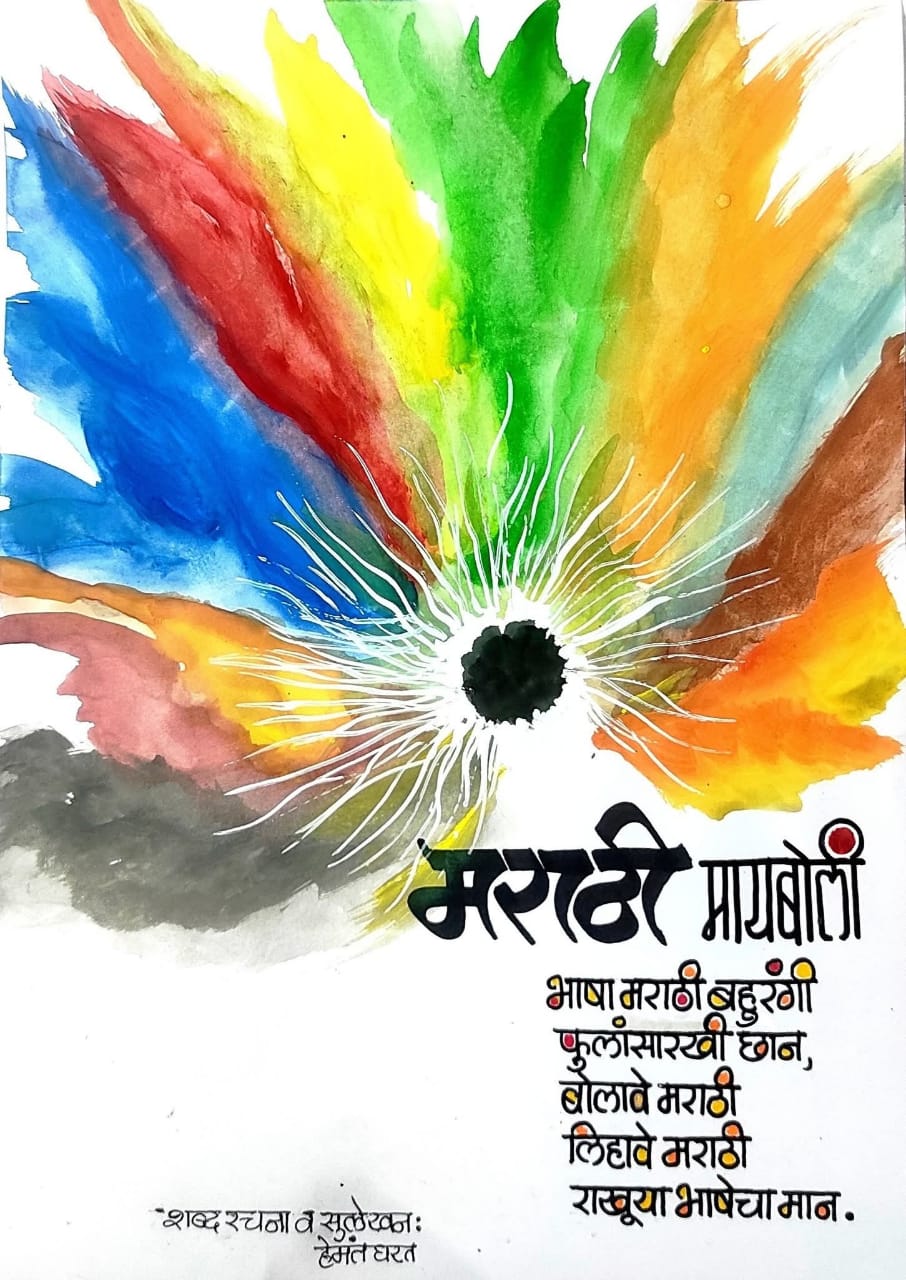 मराठी मायबोली
भाषा मराठी बहुरंगी
फुलांसारखी छान,
बोलावे मराठी
लिहावे मराठी
राखूया भाषेचा मान.
शब्द रचना व सुलेखन:
हेमंत घरत